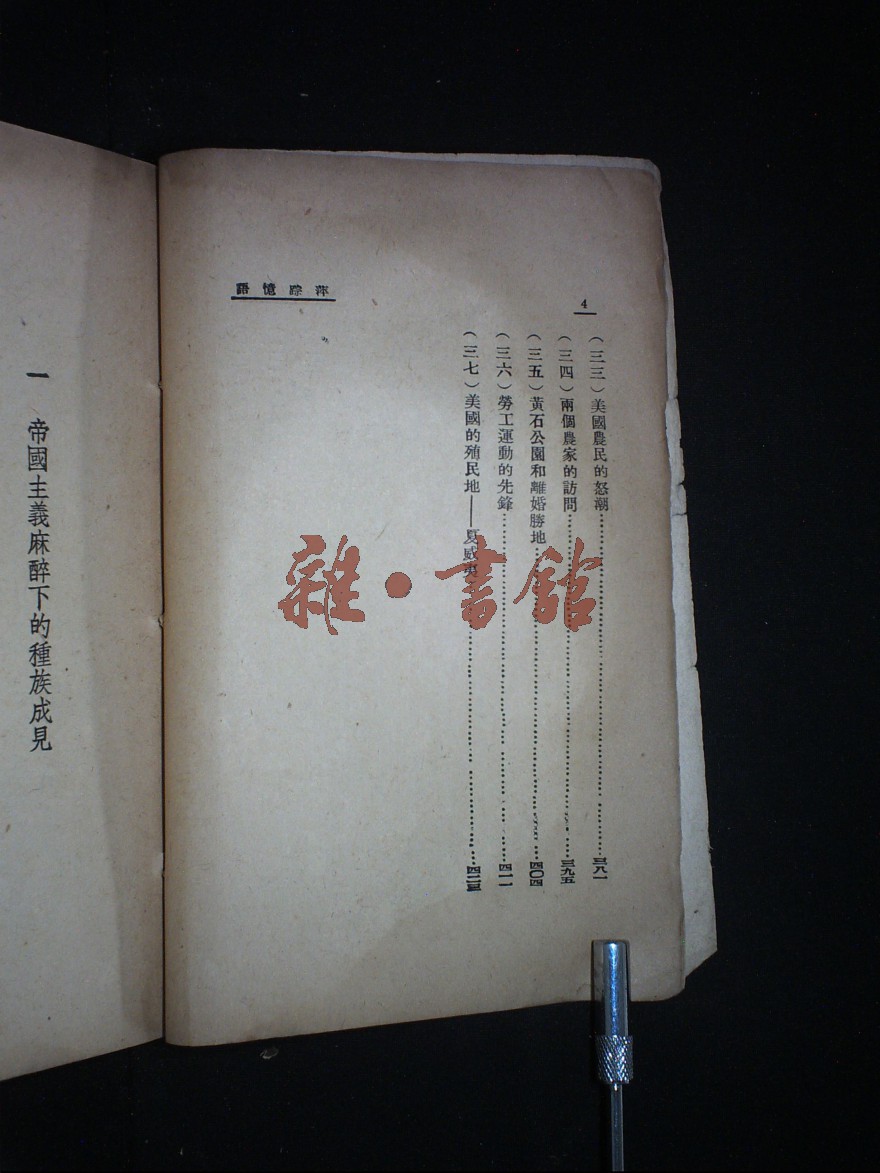 4
萍踪憶語
(三三)美國農民的怒潮……三八一
(三四)兩個農家的訪問……三九五
(三五)黃石公園和離婚勝地……四〇四
(三六)勞工運動的先鋒……四一一
(三七)美國的殖民地——夏威夷……四二三
一 帝國主義麻醉下的種族成見
雜·書館